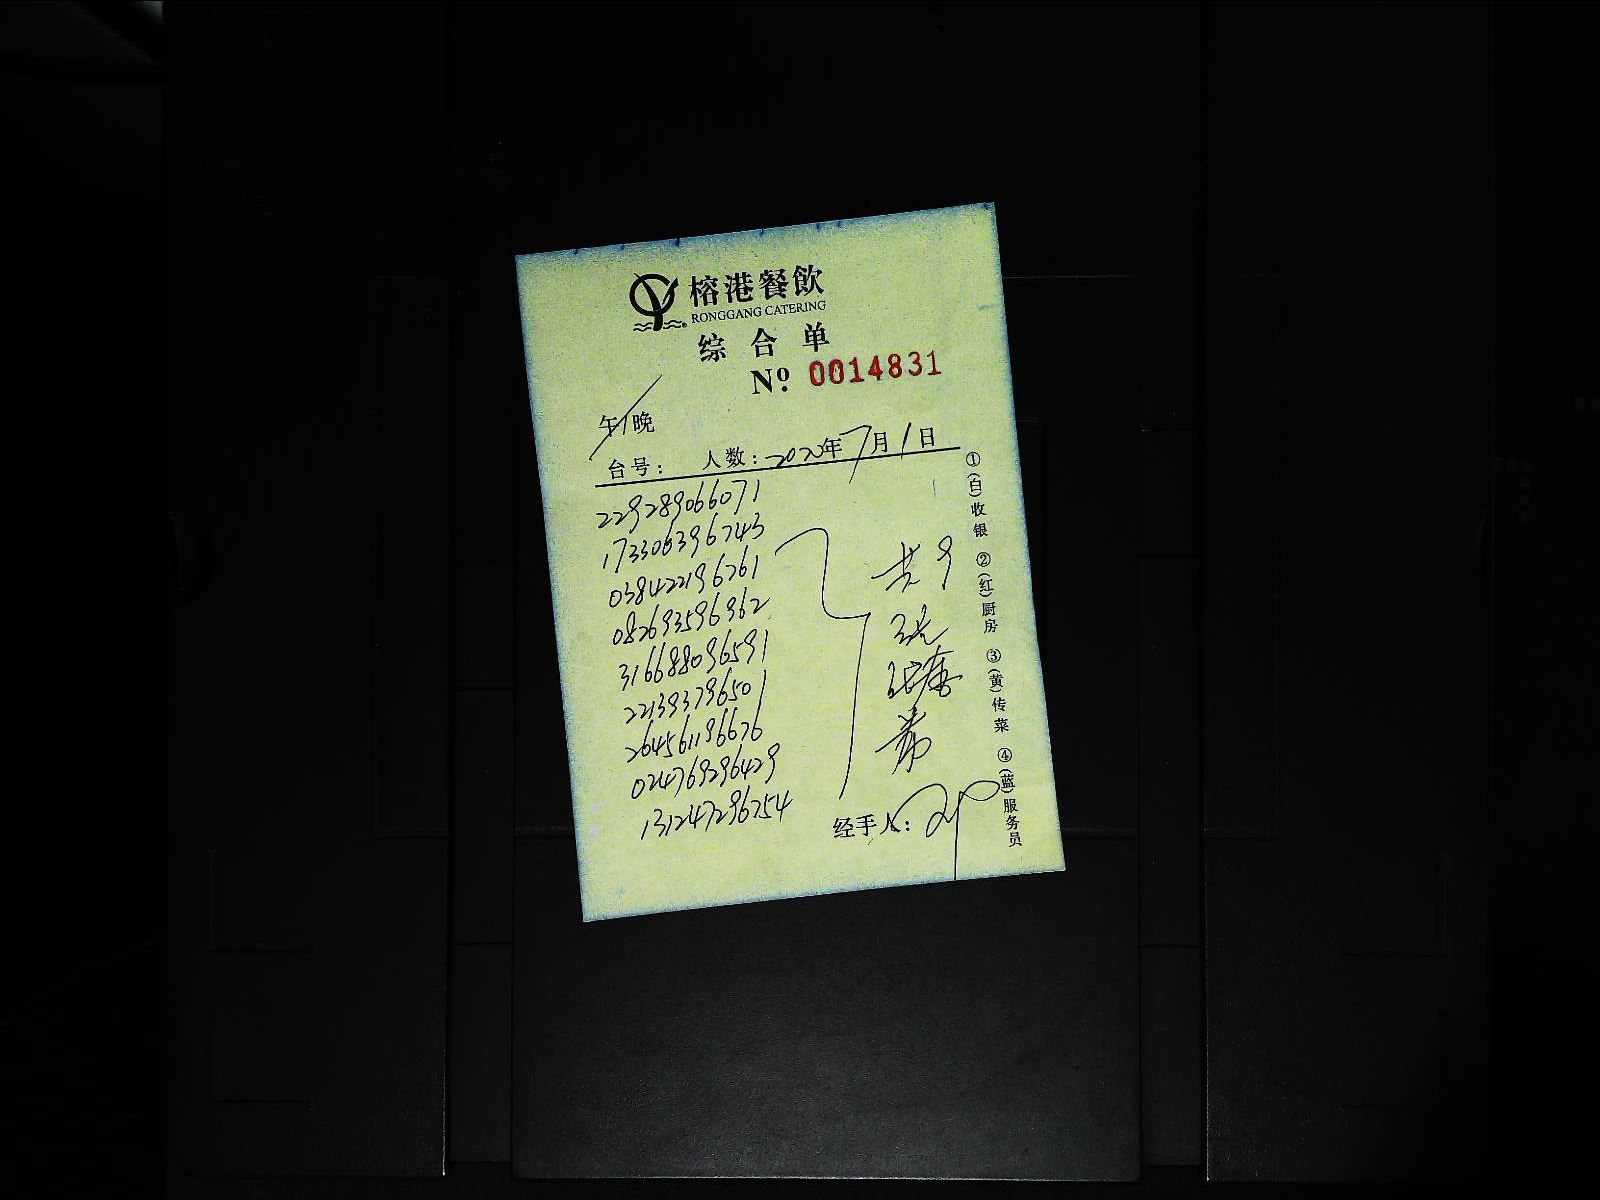 榕港餐飲
RONGGANG CATERING
综合单
Nº 0014831
午/晚
台号： 人数：2020年7月1日
229289066071
173306396743
038422196261
082693596962
316688096591
221393796501
264561196676
024769296429
131247296254
共9
经手人：
①(白)收银 ②(红)厨房 ③(黄)传菜 ④(蓝)服务员